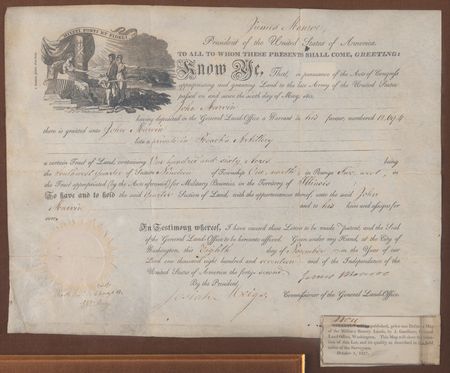 MILITI FORTI ET FIDELI
James Monroe,
President of the United States of America.
TO ALL TO WHOM THESE PRESENTS SHALL COME, GREETING:
Know Ye, That, in pursuance of the Acts of Congress
appropriating and granting Land to the late Army of the United States
passed on and since the sixth day of May, 1812,
John Marvin
having deposited in the General Land-Office a Warrant in his favour, numbered
there is granted unto John Marvin
late a private in Roach's Artillery
a certain Tract of Land, containing One hundred and sixty Acres being
the quarter of Section Nineteen of Township One, north, in Range Five, west, in
the Tract appropriated (by the Acts aforesaid) for Military Bounties, in the Territory of Illinois
To have and to hold the said Quarter Section of Land, with the appurtenances thereof, unto the said John
Marvin and to his heirs and assigns for-
ever.
In Testimony whereof, I have caused these Letters to be made Patent, and the Seal
of the General Land-Office to be hereunto affixed. Given under my Hand, at the City of
Washington, this Eighth day of December in the Year of our
Lord one thousand eight hundred and seventeen and of the Independence of the
United States of America the forty-second
James Monroe
By the President,
Josiah Meigs Commissioner of the General Land-Office.
published, price one Dollar, a Map
of the Military Bounty Lands, by J. Gardiner, General
Land Office, Washington. This Map will show the situation
of this Lot, and its quality as described in the field
notes of the Surveyors.
October 1, 1817.